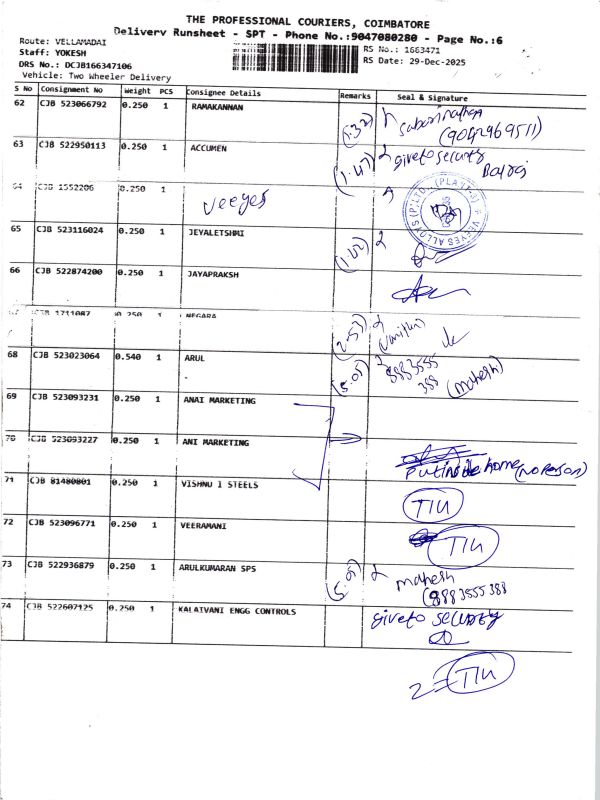 THE PROFESSIONAL COURIERS, COIMBATORE
Delivery Runsheet - SPT - Phone No.:9047080280 - Page No.:6
Route: VELLAMADAI
Staff: YOKESH
DRS No.: DCJB166347106
Vehicle: Two Wheeler Delivery
RS No.: 1663471
RS Date: 29-Dec-2025
S No Consignment No Weight PCS Consignee Details Remarks Seal & Signature
62 CJB 523066792 0.250 1 RAMAKANNAN (1:32)
(9042969511)
63 CJB 522950113 0.250 1 ACCUMEN (1:47) give to security
Balaji
64 CJB 1552206 0.250 1 Veeyes
VEEYES ALLOYS (P) LTD., (PLANT-
65 CJB 523116024 0.250 1 JEYALETSHMI
66 CJB 522874200 0.250 1 JAYAPRAKSH
67 CJB 1711087 0.250 1 NEGARA (2:53)
68 CJB 523023064 0.540 1 ARUL (5:05) 8883555
- 388 (mahesh)
69 CJB 523093231 0.250 1 ANAI MARKETING
70 CJB 523093227 0.250 1 ANI MARKETING
Put inside home (no person)
71 CJB 81480801 0.250 1 VISHNU I STEELS TIU
72 CJB 523096771 0.250 1 VEERAMANI TIU
73 CJB 522936879 0.250 1 ARULKUMARAN SPS (5:05) mahesh
(8883555388
74 CJB 522607125 0.250 1 KALAIVANI ENGG CONTROLS give to security
2 = TIU